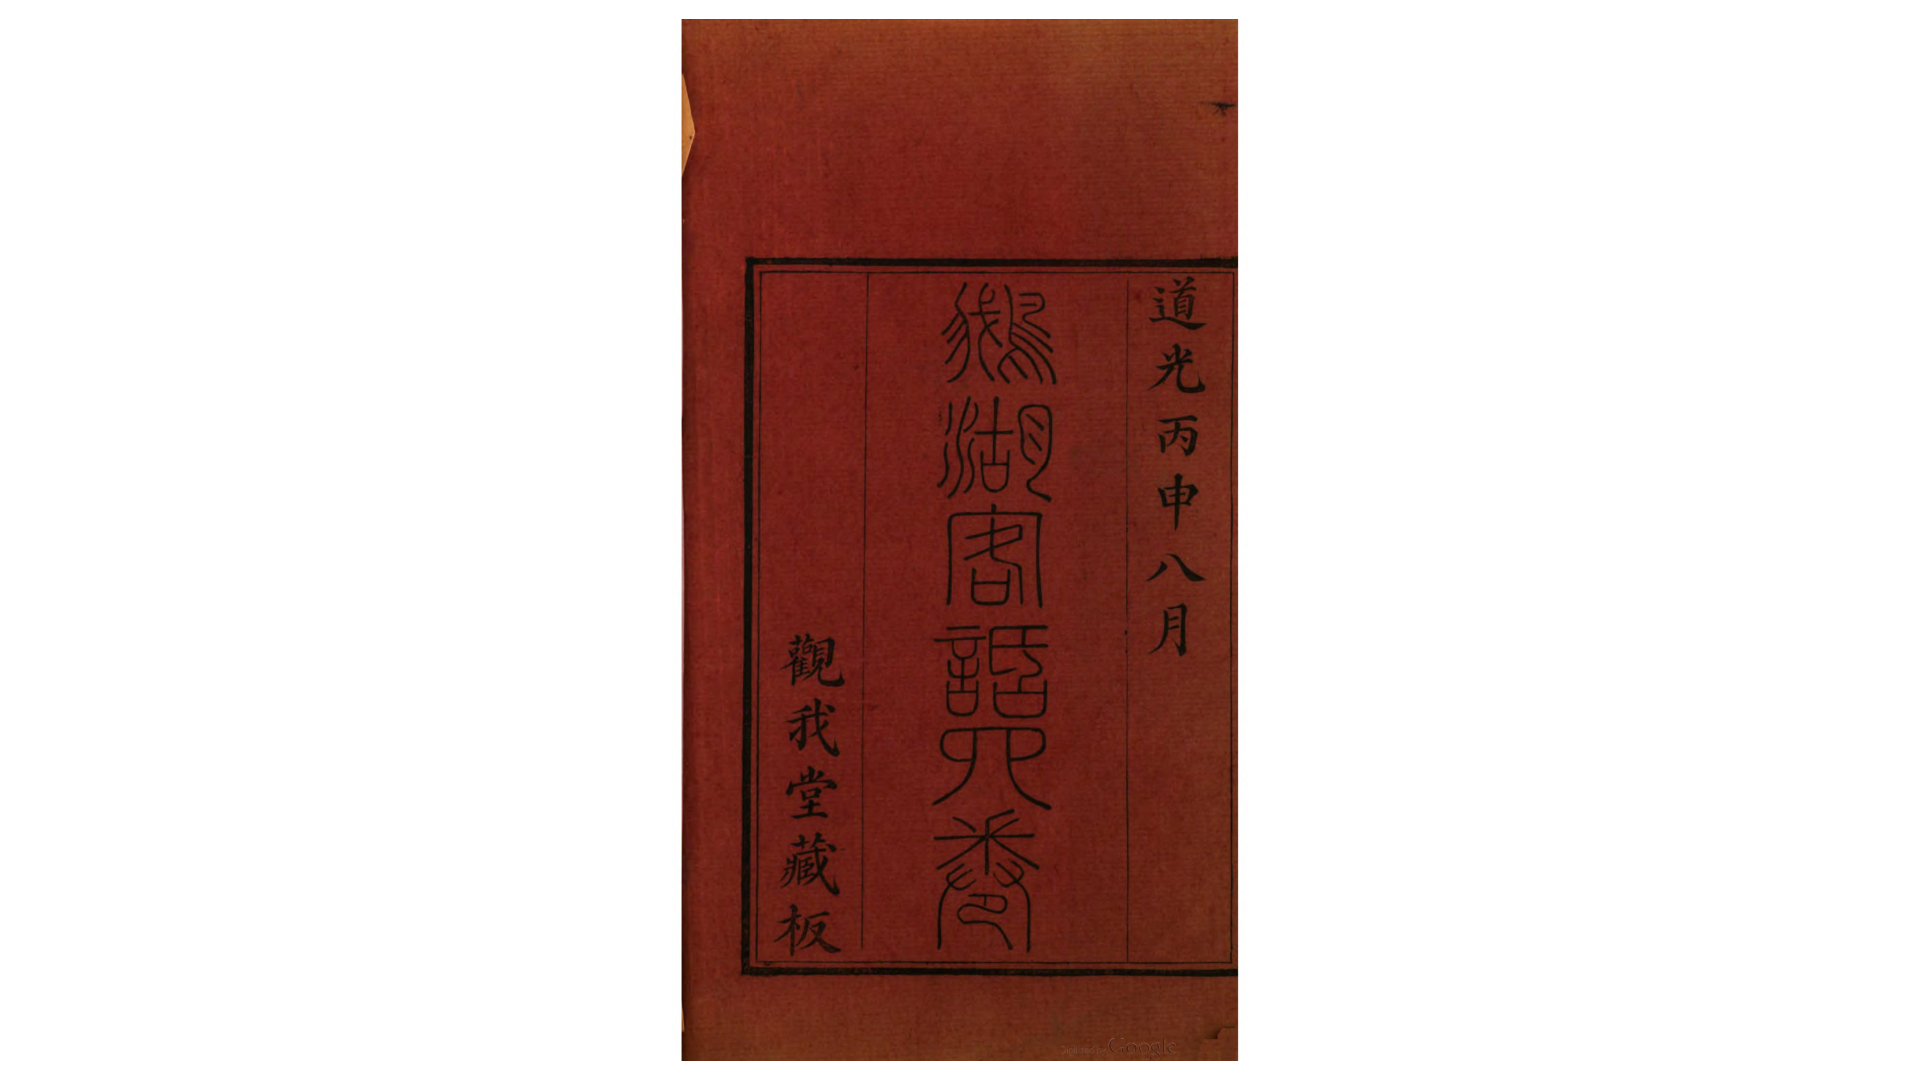 道光丙申八月
鵝湖客話四卷
觀我堂藏板
Digitized by Google